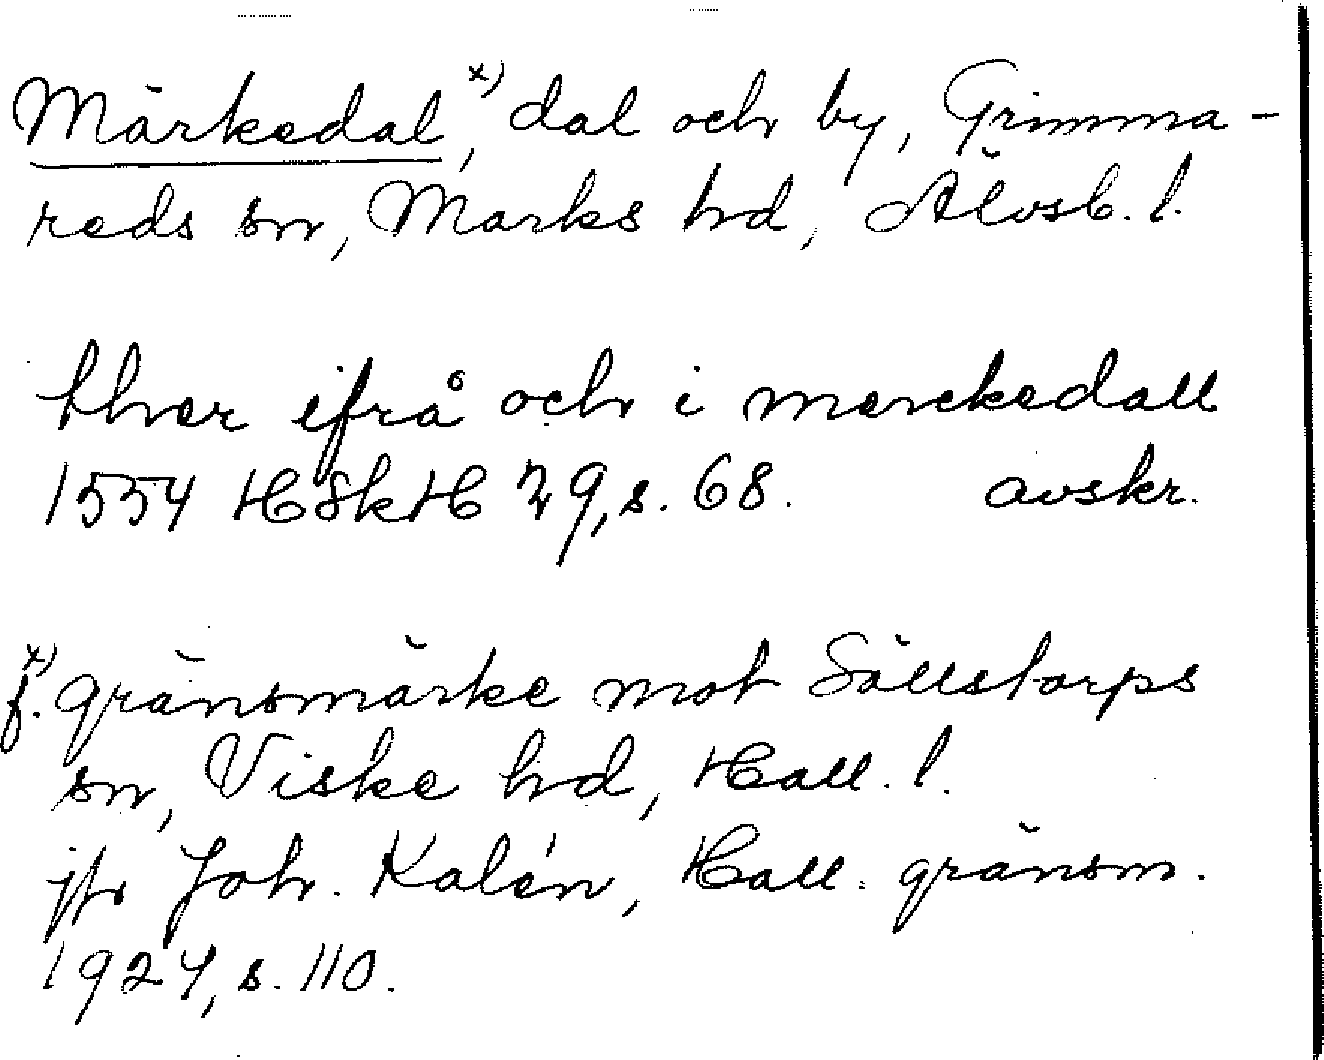 Märkedal,ˣ⁾ dal och by, Grimma-
reds sn, Marks hd, Älvsb. l.
thver ifrå och i merckedall
1554 HSkH 29, s. 68. avskr.
x) f. gränsmärke mot Sällstorps
sn, Viske hd, Hall. l.
jfr Joh. Kalén, Hall. gränsm.
1924, s. 110.